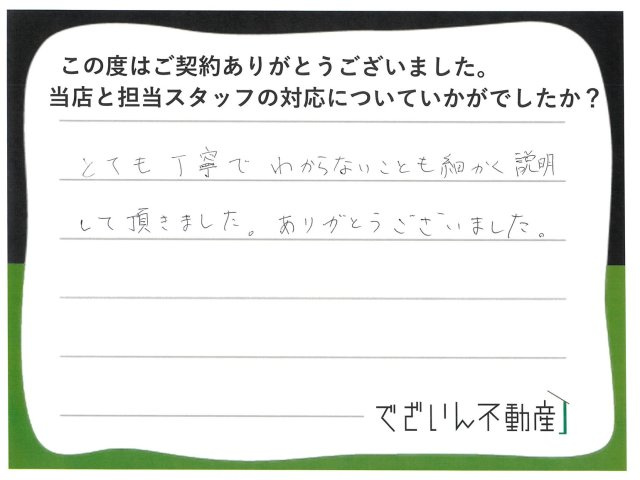 この度はご契約ありがとうございました。
当店と担当スタッフの対応についていかがでしたか？
とても丁寧で わからないことも細かく説明
して頂きました。ありがとうございました。
でざいん不動産